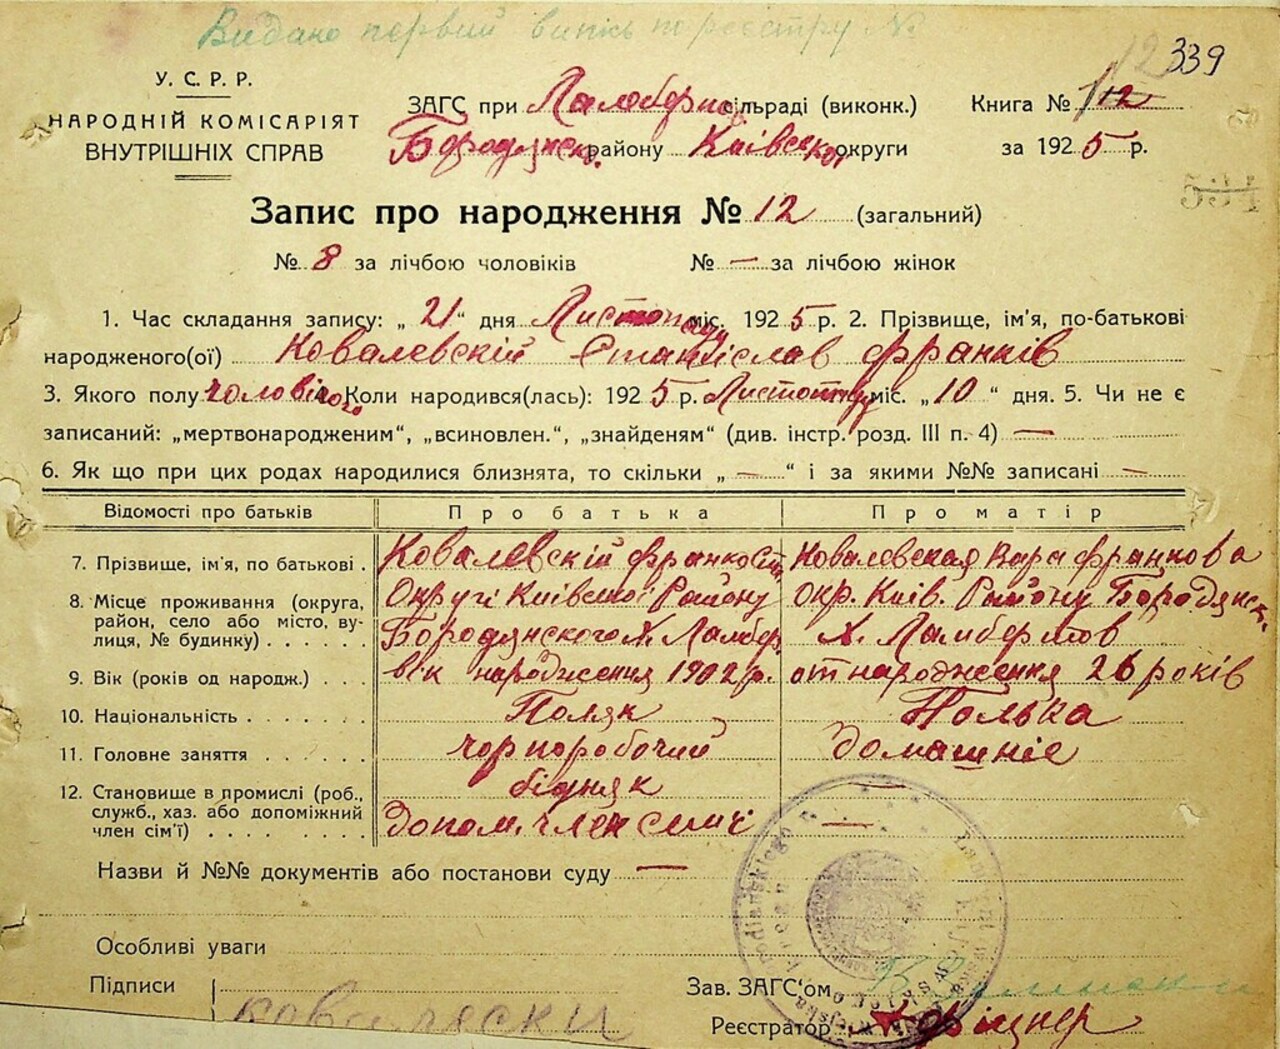 Видано первий випис по реєстру №
12 339
У. С. Р. Р.
НАРОДНІЙ КОМІСАРІЯТ
ВНУТРІШНІХ СПРАВ
ЗАГС при сільраді (виконк.)
Бородянско. району Київской округи
Книга № 12
за 1925 р.
534
Запис про народження № 12 (загальний)
№ 8 за лічбою чоловіків № — за лічбою жінок
1. Час складання запису: „21“ дня Листопада міс. 1925 р. 2. Прізвище, ім'я, по-батькові
народженого(ої) Ковалевскій Станіслав Франків
3. Якого полу чоловічого 4. Коли народився(лась): 1925 р. Листопаду міс. „10“ дня. 5. Чи не є
записаний: „мертвонародженим“, „всиновлен.“, „знайденям“ (див. інстр. розд. III п. 4) —
6. Як що при цих родах народилися близнята, то скільки „—“ і за якими №№ записані —
Відомості про батьків Про батька Про матір
7. Прізвище, ім'я, по батькові . Ковалевскій Франко Ковалевская Вара Францова
8. Місце проживання (округа, Округі Київської Району окр. Київ. Району Бородянск.
район, село або місто, ву- Бородянского Х. Ламбер. Х. Ламбертов
лиця, № будинку) . . . . . .
9. Вік (років од народж.) . . . вік народження 1902 р. от народження 26 років
10. Національність . . . . . . . Поляк Полька
11. Головне заняття . . . . . . чорноробочий домашніе
12. Становище в промислі (роб., бідняк —
служб., хаз. або допоміжний
член сім'ї) . . . . . . . . Допом. член сімї —
Назви й №№ документів або постанови суду —
Особливі уваги
Підписи Ковалески
Зав. ЗАГС'ом
Реєстратор